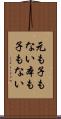 元も子も
ない本も
子もない